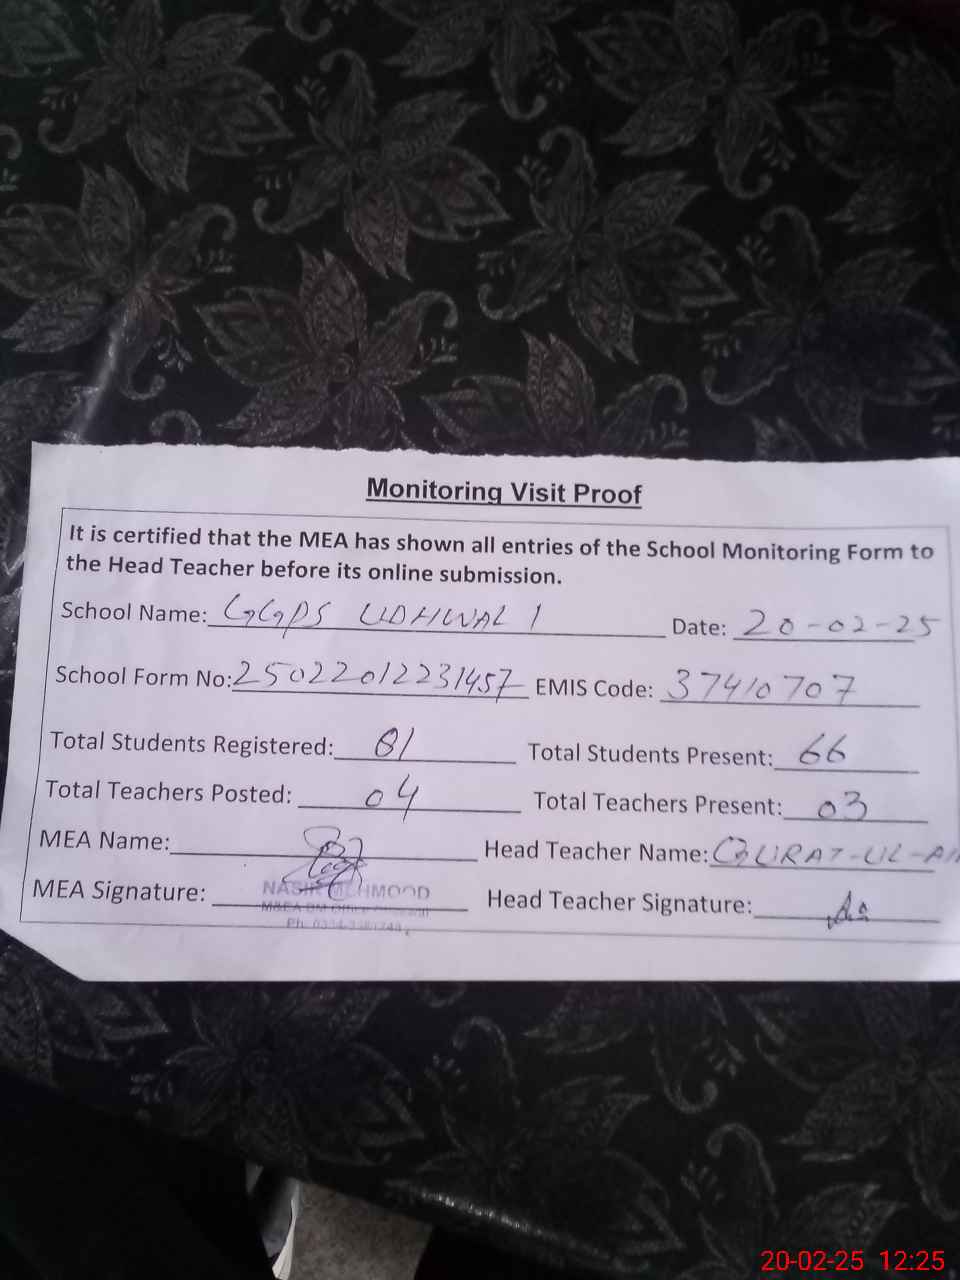 Monitoring Visit Proof
It is certified that the MEA has shown all entries of the School Monitoring Form to
the Head Teacher before its online submission.
School Name: GGPS UDHWAL 1 Date: 20-02-25
School Form No: 25022012231457 EMIS Code: 37410707
Total Students Registered: 81 Total Students Present: 66
Total Teachers Posted: 04 Total Teachers Present: 03
MEA Name: Head Teacher Name: QURAT-UL-AI
MEA Signature: Head Teacher Signature:
NASIR MEHMOOD
M&EA DM Office
20-02-25 12:25